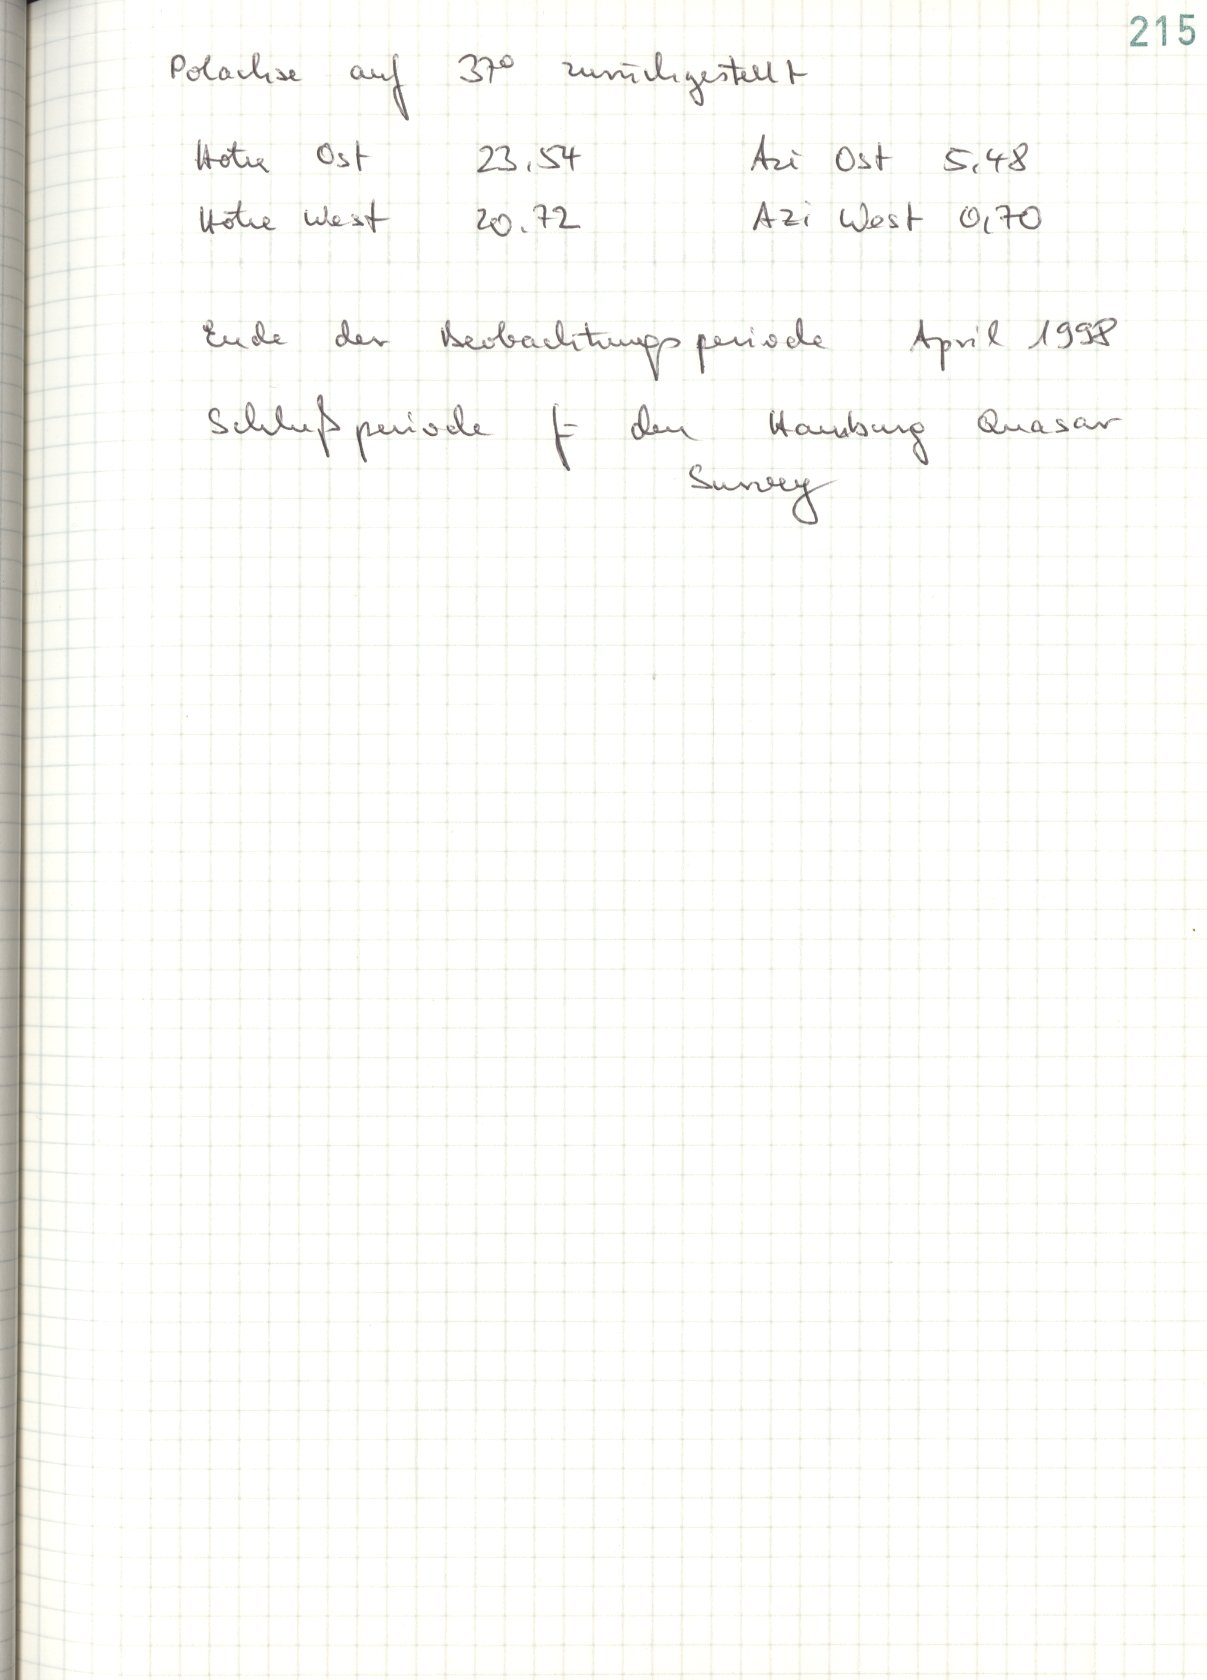 215
Polachse auf 37° zurückgestellt
Höhe Ost 23.54 Azi Ost 5.48
Höhe West 20.72 Azi West 0,70
Ende der Beobachtungsperiode April 1998
Schlußperiode f den Hamburg Quasar
Survey